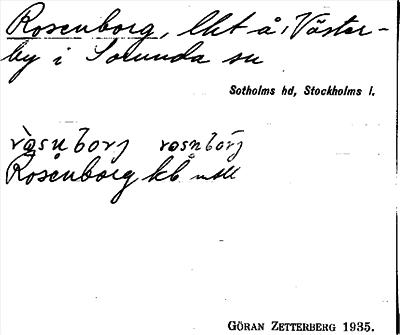 Rosenborg, lht å Väster-
by i Sorunda sn
Sotholms hd, Stockholms l.
ròsnborj rosnbórj
Rosenborg kb
GÖRAN ZETTERBERG 1935.